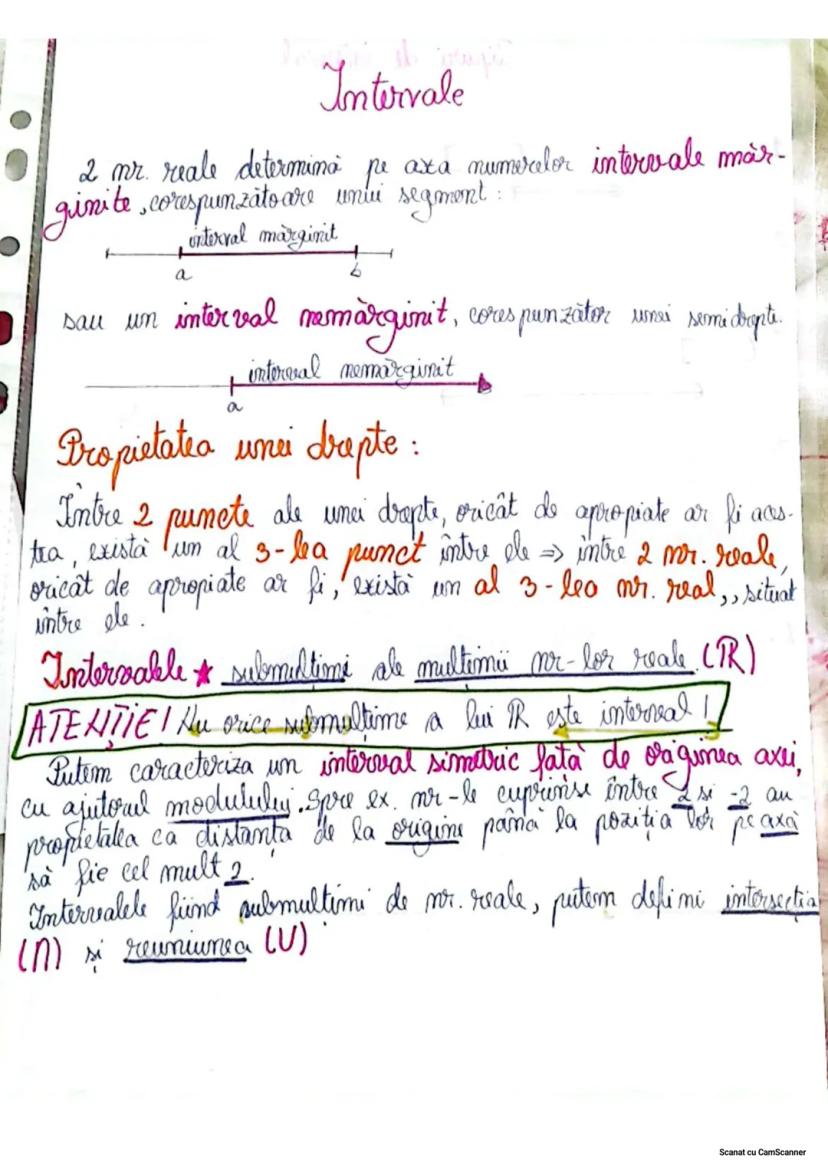 Intervale
2 nr. reale determină pe axa numerelor intervale măr-
ginite, corespunzătoare unui segment:
interval mărginit
a b
sau un interval nemărginit, corespunzător unei semidrepte.
interval nemărginit
a
Propietatea unei drepte:
Între 2 puncte ale unei drepte, oricât de apropiate ar fi aces-
tea, există un al 3-lea punct între ele => între 2 nr. reale,
oricât de apropiate ar fi, există un al 3-lea nr. real,, situat
între ele.
Intervalele ★ submultimi ale multimii nr-lor reale (ℝ)
ATENȚIE! Nu orice submultime a lui ℝ este interval!
Putem caracteriza un interval simetric față de originea axei,
cu ajutorul modulului. Spre ex. nr-le cuprinse între 2 si -2 au
propietatea ca distanța de la origine până la poziția lor pe axă
să fie cel mult 2.
Intervalele fiind submultimi de nr. reale, putem defini intersecția
(∩) și reuniunea (U)
Scanat cu CamScanner